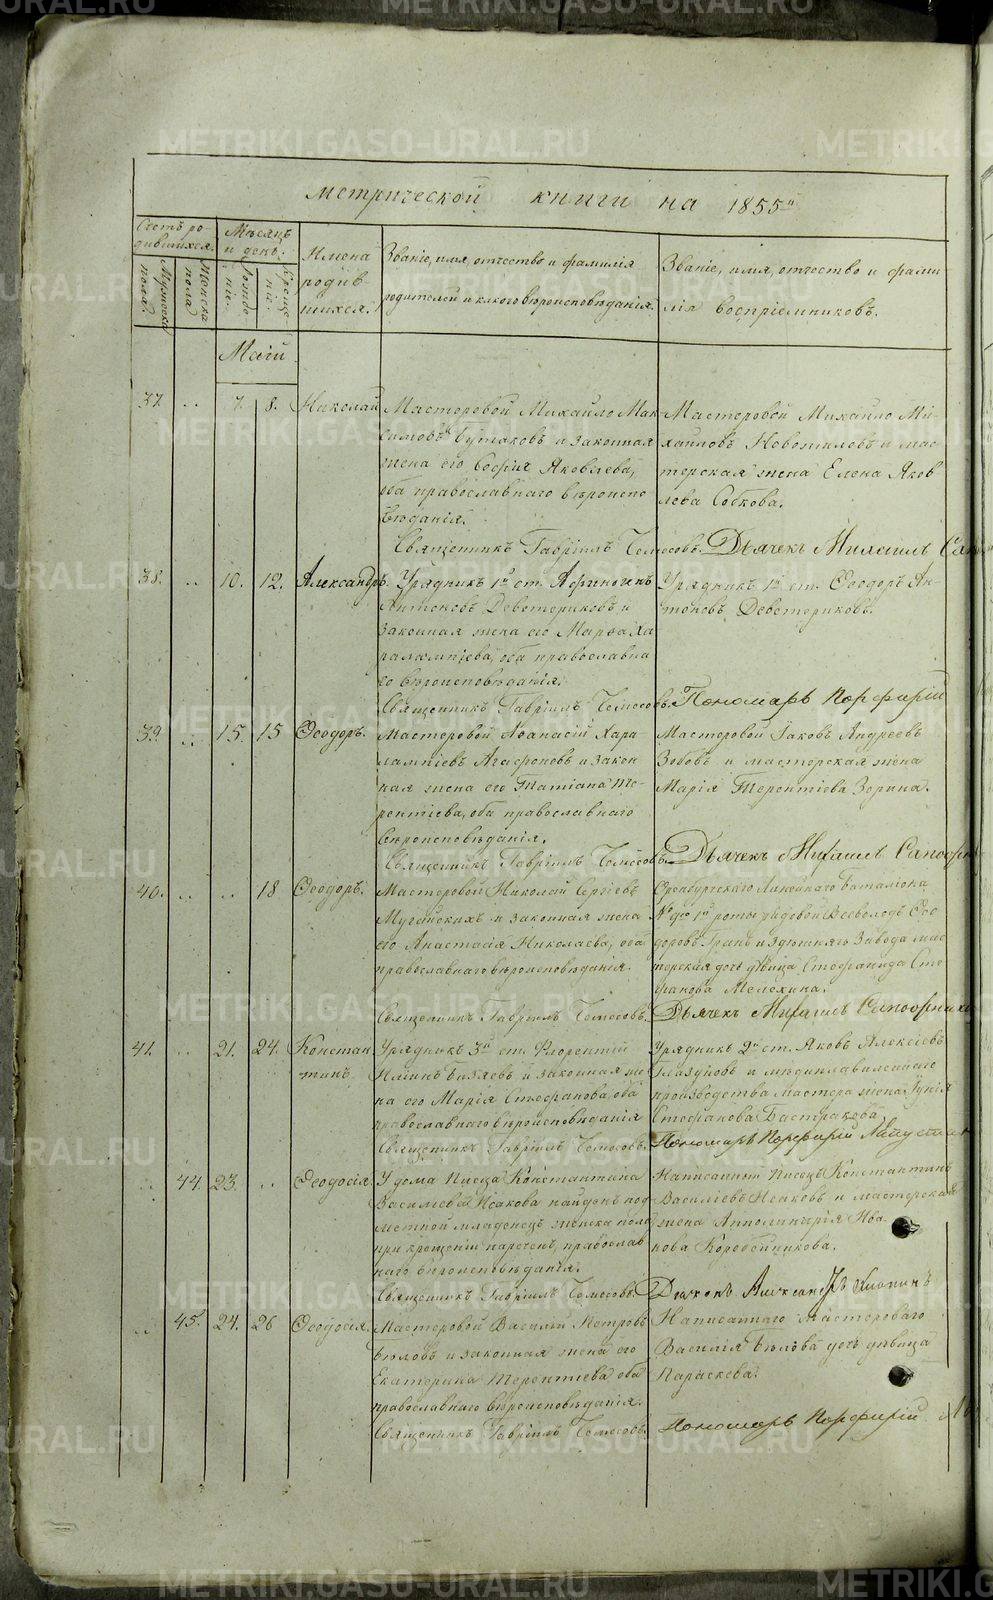 метрической книги на 1855й
Счетъ ро-
дившихся.
Мужеска
пола.
Женска
пола
Мѣсяцъ
и день.
рожде
ніе.
креще
ніе.
Имена
родив
шихся.
Званіе, имя, отчество и фамилія
родителей и какого вѣроисповѣданія.
Званіе, имя, отчество и фами-
лія воспріемниковъ.
Маій
37. .. 7. 8. Николай
Мастеровой Михайло Мак
симовъ Бутаковъ и законная
жена его Софія Яковлева,
оба православнаго вѣроиспо
вѣданія.
Священникъ Гавріилъ
Мастеровой Михайло Ми-
хайловъ Новожиловъ и мас-
терская жена Елена Яков
лева Собкова.
Дьячекъ Михаилъ
38. .. 10. 12. Александръ.
Урядникъ 1й ст. Афиногенъ
Антоновъ Девотериковъ и
законная жена его Марѳа Ха
рлампіева, оба православна
го вѣроисповѣданія.
Священникъ Гавріилъ
Урядникъ 1й ст. Ѳеодоръ Ан-
тоновъ Девотериковъ.
Пономарь Порфирій
39. .. 15. 15 Ѳеодоръ.
Мастеровой Аѳанасій Хара
лампіевъ Агафоновъ и закон
ная жена его Татіана Те-
рентіева, оба православнаго
вѣроисповѣданія.
Священникъ Гавріилъ
Мастеровой Іаковъ Андреевъ
Зобовъ и мастерская жена
Марія Терентіева Зорина.
Дьячекъ Михаилъ
40. .. .. 18 Ѳеодоръ.
Мастеровой Николай Сергіевъ
и законная жена
его Анастасія Николаева, оба
православнаго вѣроисповѣданія.
Священникъ Гавріилъ
Оренбургскаго Линейнаго Баталіона
1й роты рядовой Всеволодъ Ѳео
доровъ и здѣшняго Завода мас
терская дочь дѣвица Стефанида Сте
фанова Мелехина.
Дьячекъ Михаилъ
41. .. 21. 24. Констан
тинъ.
Урядникъ 3й ст. Флорентій
Ильинъ и законная же
на его Марія Стефанова оба
православнаго вѣроисповѣданія
Священникъ Гавріилъ
Урядникъ 2й ст. Яковъ Алексіевъ
Глазуновъ и мѣдиплавиленнаго
производства мастера жена
Стефанова Бастракова
Пономарь Порфирій
.. 44. 23. .. Ѳеодосія.
У дома Писца Константина
Василіева Исакова найденъ под
метной младенецъ женска пола
при крещеніи нареченъ, православ
наго вѣроисповѣданія.
Священникъ Гавріилъ
Написанный Писецъ Константинъ
Василіевъ Исаковъ и мастерская
жена Апполинарія Ива
нова Коробейникова.
Діаконъ Александръ
.. 45. 24. 26 Ѳеодосія.
Мастеровой Василій Петровъ
Бѣловъ и законная жена его
Екатерина Терентіева оба
православнаго вѣроисповѣданія.
Священникъ Гавріилъ
Написаннаго Мастероваго
Василія Бѣлова дочь дѣвица
Параскева.
Пономарь Порфирій
METRIKI.GASO-URAL.RU